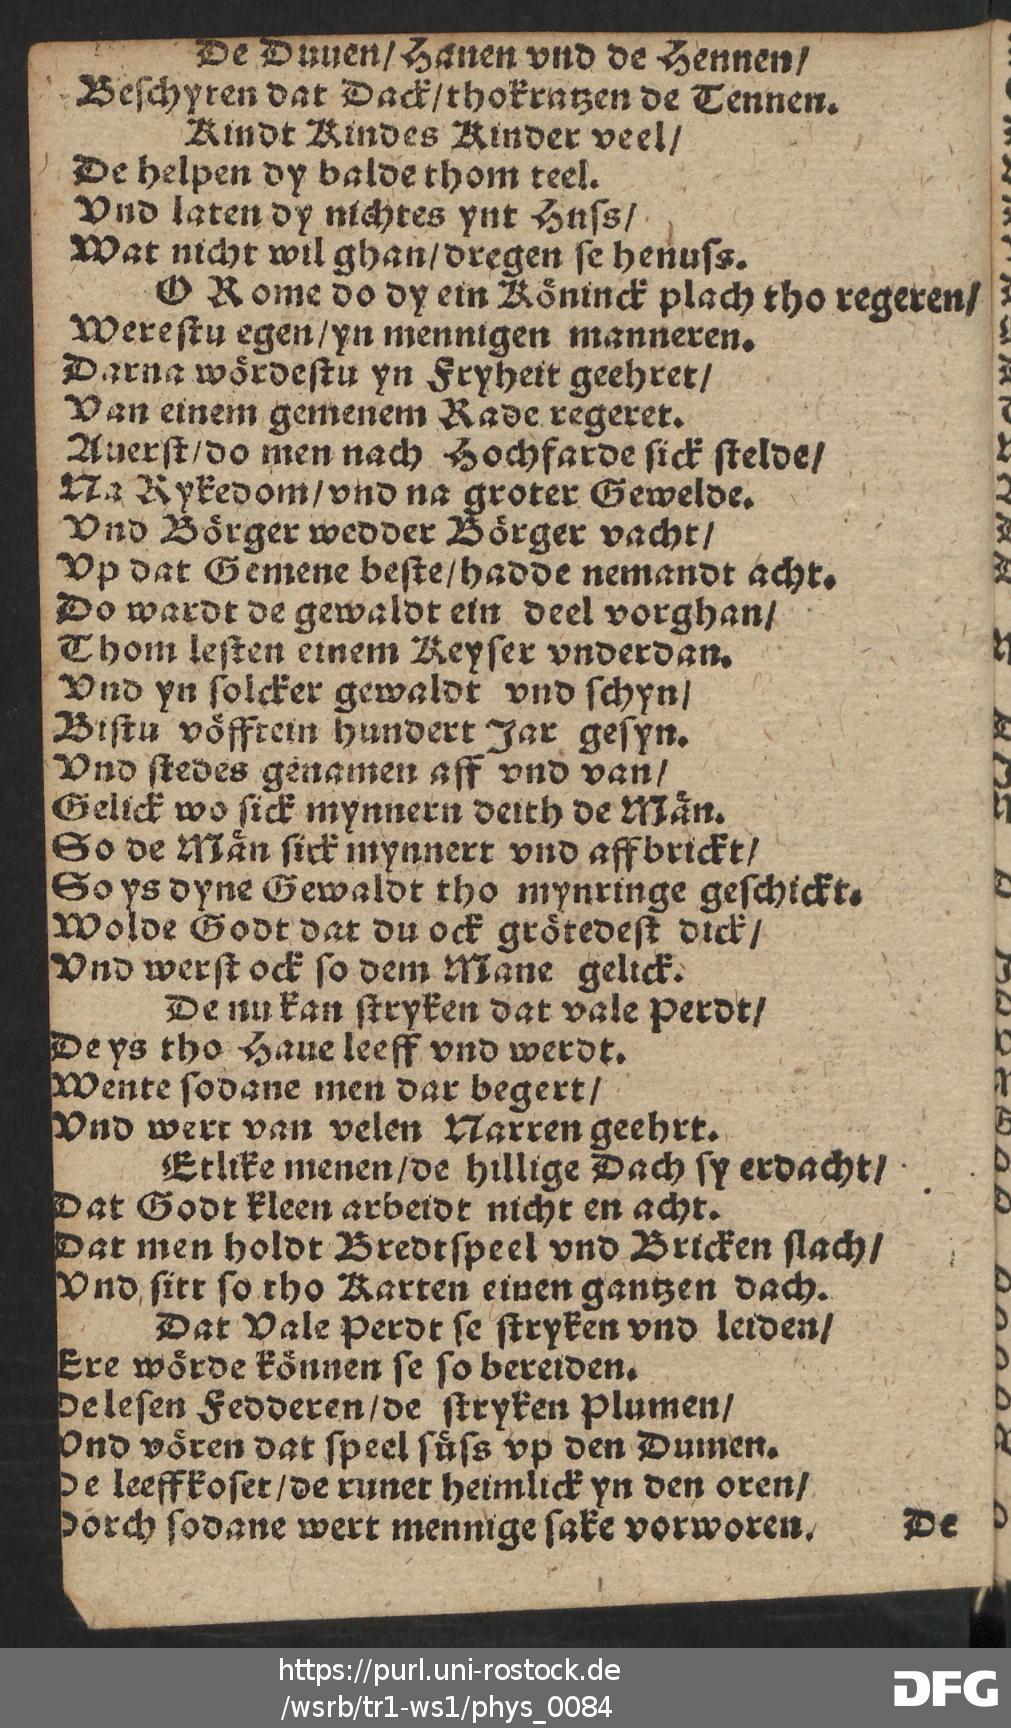 De Duuen/ Hanen vnd de Hennen/
Beschyten dat Dack/ thokratzen de Tennen.
Kindt Kindes Kinder veel/
De helpen dy balde thom teel.
Vnd laten dy nichtes ynt Huss/
Wat nicht wil ghan/ dregen se henuss.
O Rome do dy ein Köninck plach tho regeren/
Werestu egen/ yn mennigen manneren.
Darna wördestu yn Fryheit geehret/
Van einem gemenem Rade regeret.
Auerst/ do men nach Hochfarde sick stelde/
Na Rykedom/ vnd na groter Gewelde.
Vnd Börger wedder Börger vacht/
Vp dat Gemene beste/ hadde nemandt acht.
Do wardt de gewaldt ein deel vorghan/
Thom lesten einem Keyser vnderdan.
Vnd yn solcker gewaldt vnd schyn/
Bistu vöfftein hundert Jar gesyn.
Vnd stedes genamen aff vnd van/
Gelick wo sick mynnern deith de Män.
So de Män sick mynnert vnd affbrickt/
So ys dyne Gewaldt tho mynringe geschickt.
Wolde Godt dat du ock grötedest dick/
Vnd werst ock so dem Mane gelick.
De nu kan stryken dat vale Perdt/
De ys tho Haue leeff vnd werdt.
Wente sodane men dar begert/
Vnd wert van velen Narren geehrt.
Etlike menen/ de hillige Dach sy erdacht/
Dat Godt kleen arbeidt nicht en acht.
Dat men holdt Bredtspeel vnd Bricken slach/
Vnd sitt so tho Karten einen gantzen dach.
Dat Vale Perdt se stryken vnd leiden/
Ere wörde können se so bereiden.
De lesen Fedderen/ de stryken Plumen/
Vnd vören dat speel süss vp den Dumen.
De leeffkoset/ de runet heimlick yn den oren/
Dorch sodane wert mennige sake vorworen.
De
https://purl.uni-rostock.de
/wsrb/tr1-ws1/phys_0084
DFG